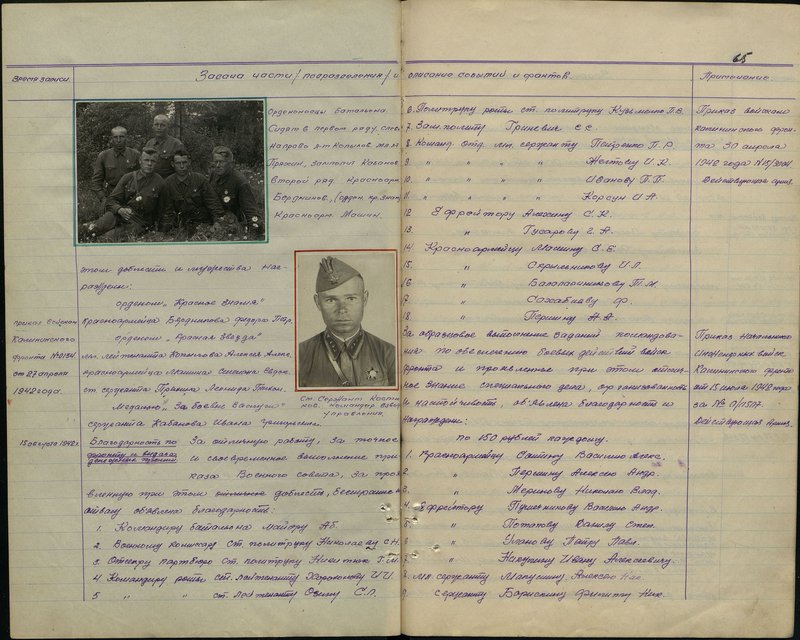 65
Время записи
Задача части/подразделения/и описание событий и фактов.
Примечание.
Орденоносцы батальона.
Сидят в первом ряду, слева
Направо л-т Копылов, мл.
второй ряд. Красноарм.
Бердников, (орден. кр. Знам)
Красноарм. Машин.
этом доблести и мужества наг-
раждены:
орденом „Красное Знамя"
Красноармейца Бердникова Федора Петр.
орденом „Красная Звезда"
мл. лейтенанта Копылова Алексея Алекс.
красноармейца Машина Симиона
ст. сержанта Леонида
Медалью „За боевые заслуги"
сержанта Кабанова Ивана Григорьевич.
приказ войскам
Калининского
фронта №0134
от 27 апреля
1942 года.
Ст. Сержант
ков. Командир взвод
Управления.
15 августа 1942г.
Благодарность по
фронту и выдача
денежных премий
За отличную работу, за точное
и своевременное выполнение при-
каза Военного совета, за проя-
вленную при этом доблесть, бесстрашие и
отвагу объявлена благодарность:
1. Командиру батальона майору
2. Военному комиссару ст. политруку Николаеву С.Н.
3. Отсекру партбюро ст. политруку Никитюк Г.М.
4 Командиру роты ст. лейтенанту И.И.
5 " " ст. лейтенанту С.П.
6. Политруку роты ст. политруку Кузьменко П.В.
7. Зам. политр. Гриневич С.С.
8. Команд. отд. мл. сержанту Петренко П.Р.
9. " " " " Жогтову И.К.
10. " " " " Иванову П.Б.
11. " " " " Корсун И.А.
12 Ефрейтору Алехину С.К.
13. " Гусарову Г.А.
14. Красноармейцу Машину С.Е.
15. " Скрыльникову И.Л.
16 " Балалашникову Т.М.
17 " Ф.
18. " Першину А.А.
За образцовое выполнение заданий командова-
ния по обеспечению боевых действий войск
фронта и проявленное при этом отлич-
ное знание специального дела, организованность
и настойчивость, объявлена благодарность и
награждены:
по 150 рублей каждому.
1. Красноармейцу Василию Алекс.
2. " Першину Алексею Андр.
3. " Меринову Николаю Влад.
4. Ефрейтору Пушейникову Василию Андр.
5. " Потапову Данилу Степ.
6 " Уланову Петру Павл.
7 " Ивану Алексеевичу.
8. мл. сержанту Макушину Алексею
9. сержанту Борискину Филиппу Ник.
Приказ войскам
Калининского фрон-
та 30 апреля
1942 года
Действующая армия.
Приказ Начальника
Инженерных войск
Калининского фронта
от 15 июля 1942 года
за № 0/1507.
Действующая армия.